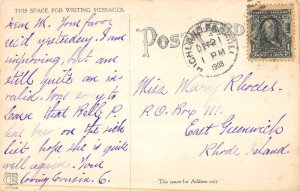 THIS SPACE FOR WRITING MESSAGES
Dear M. Your favor
rec'd yesterday. I am
improving, but am
still quite an in-
valid. Was sorry to
learn that Kelly P.
has been on the sick
list hope she is quite
well again. Your
loving Cousin. C.
POST
1 PM
1908
Miss Mary Rhodes
P.O. Box 111.
East Greenwich
Rhode Island
This space for Address only